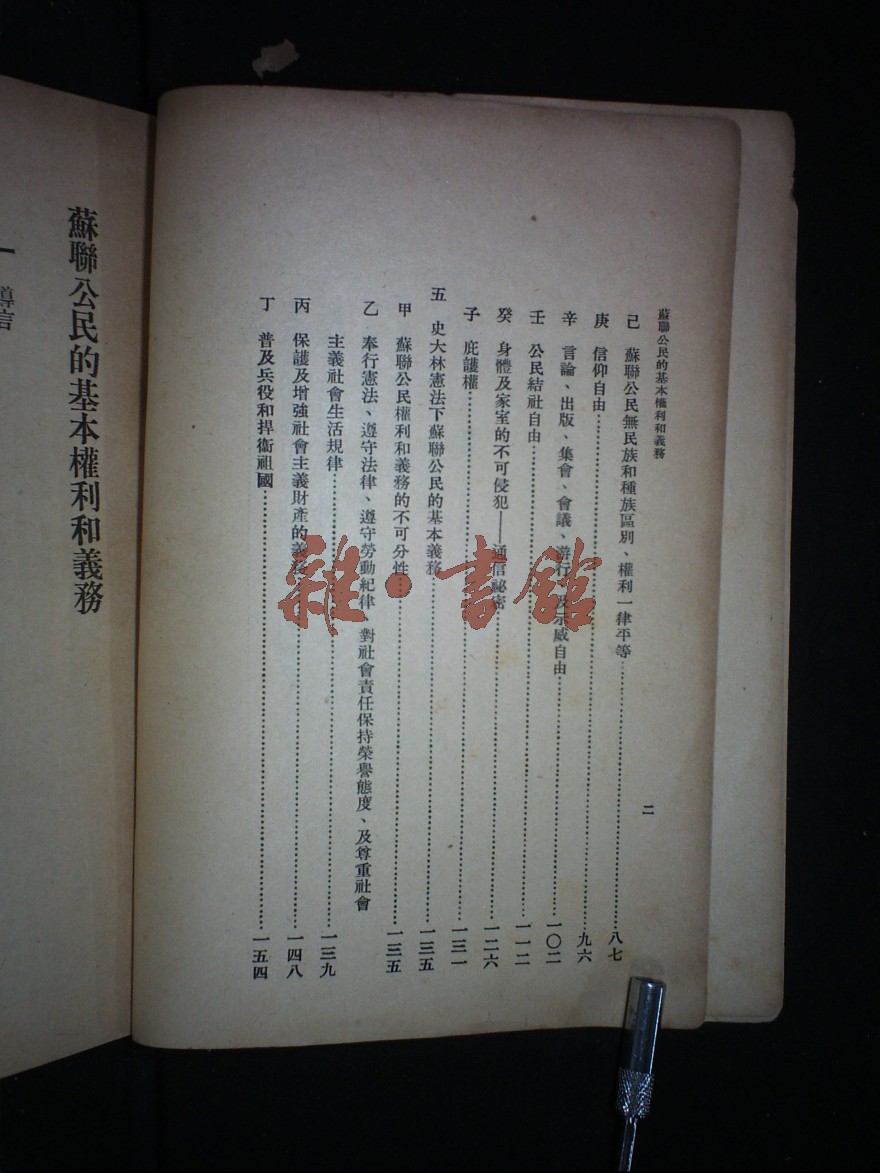 蘇聯公民的基本權利和義務
二
己　蘇聯公民無民族和種族區別、權利一律平等……八七
庚　信仰自由……九六
辛　言論、出版、集會、會議、游行、及示威自由……一〇二
壬　公民結社自由……一一二
癸　身體及家室的不可侵犯——通信祕密……一二六
子　庇護權……一三一
五　史大林憲法下蘇聯公民的基本義務……一三五
甲　蘇聯公民權利和義務的不可分性……一三五
乙　奉行憲法、遵守法律、遵守勞動紀律、對社會責任保持榮譽態度、及尊重社會
主義社會生活規律……一三九
丙　保護及增強社會主義財產的義務……一四八
丁　普及兵役和捍衞祖國……一五四
蘇聯公民的基本權利和義務
一　導言
雜·書館